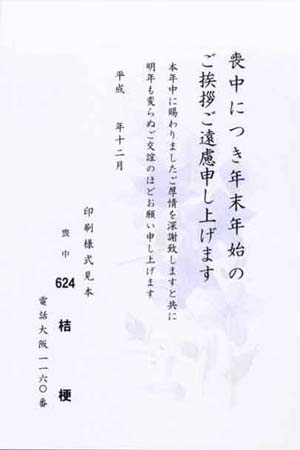 喪中につき年末年始の
ご挨拶ご遠慮申し上げます
本年中に賜わりましたご厚情を深謝致しますと共に
明年も変らぬご交誼のほどお願い申し上げます
平成　年十二月
印刷様式見本
喪中
624 桔梗
電話大阪一一六〇番